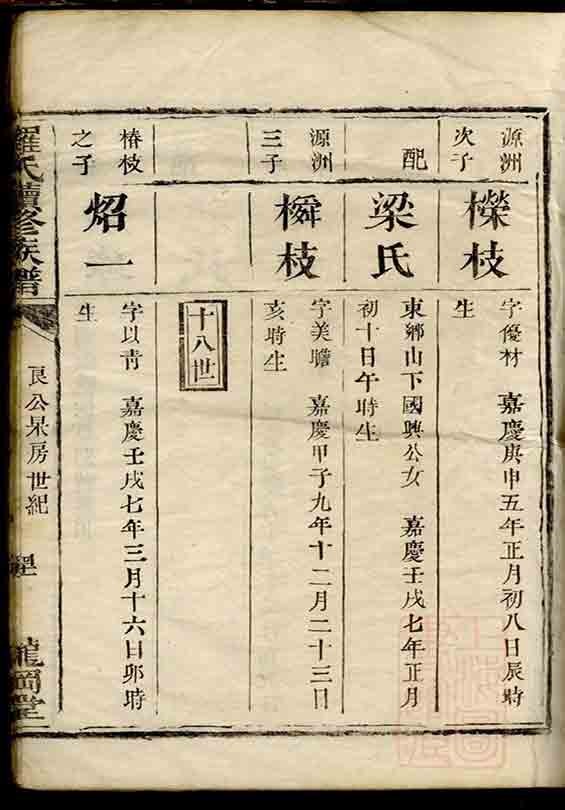 源洲
次子
櫟枝
字優材 嘉慶庚申五年正月初八日辰時
生
配
梁氏
東鄉山下國興公女 嘉慶壬戌七年正月
初十日午時生
源洲
三子
橓枝
字美瞻 嘉慶甲子九年十二月二十三日
亥時生
十八世
椿枝
之子
炤一
字以青 嘉慶壬戌七年三月十六日卯時
生
羅氏續修族譜
良公杲房世紀
龍岡堂